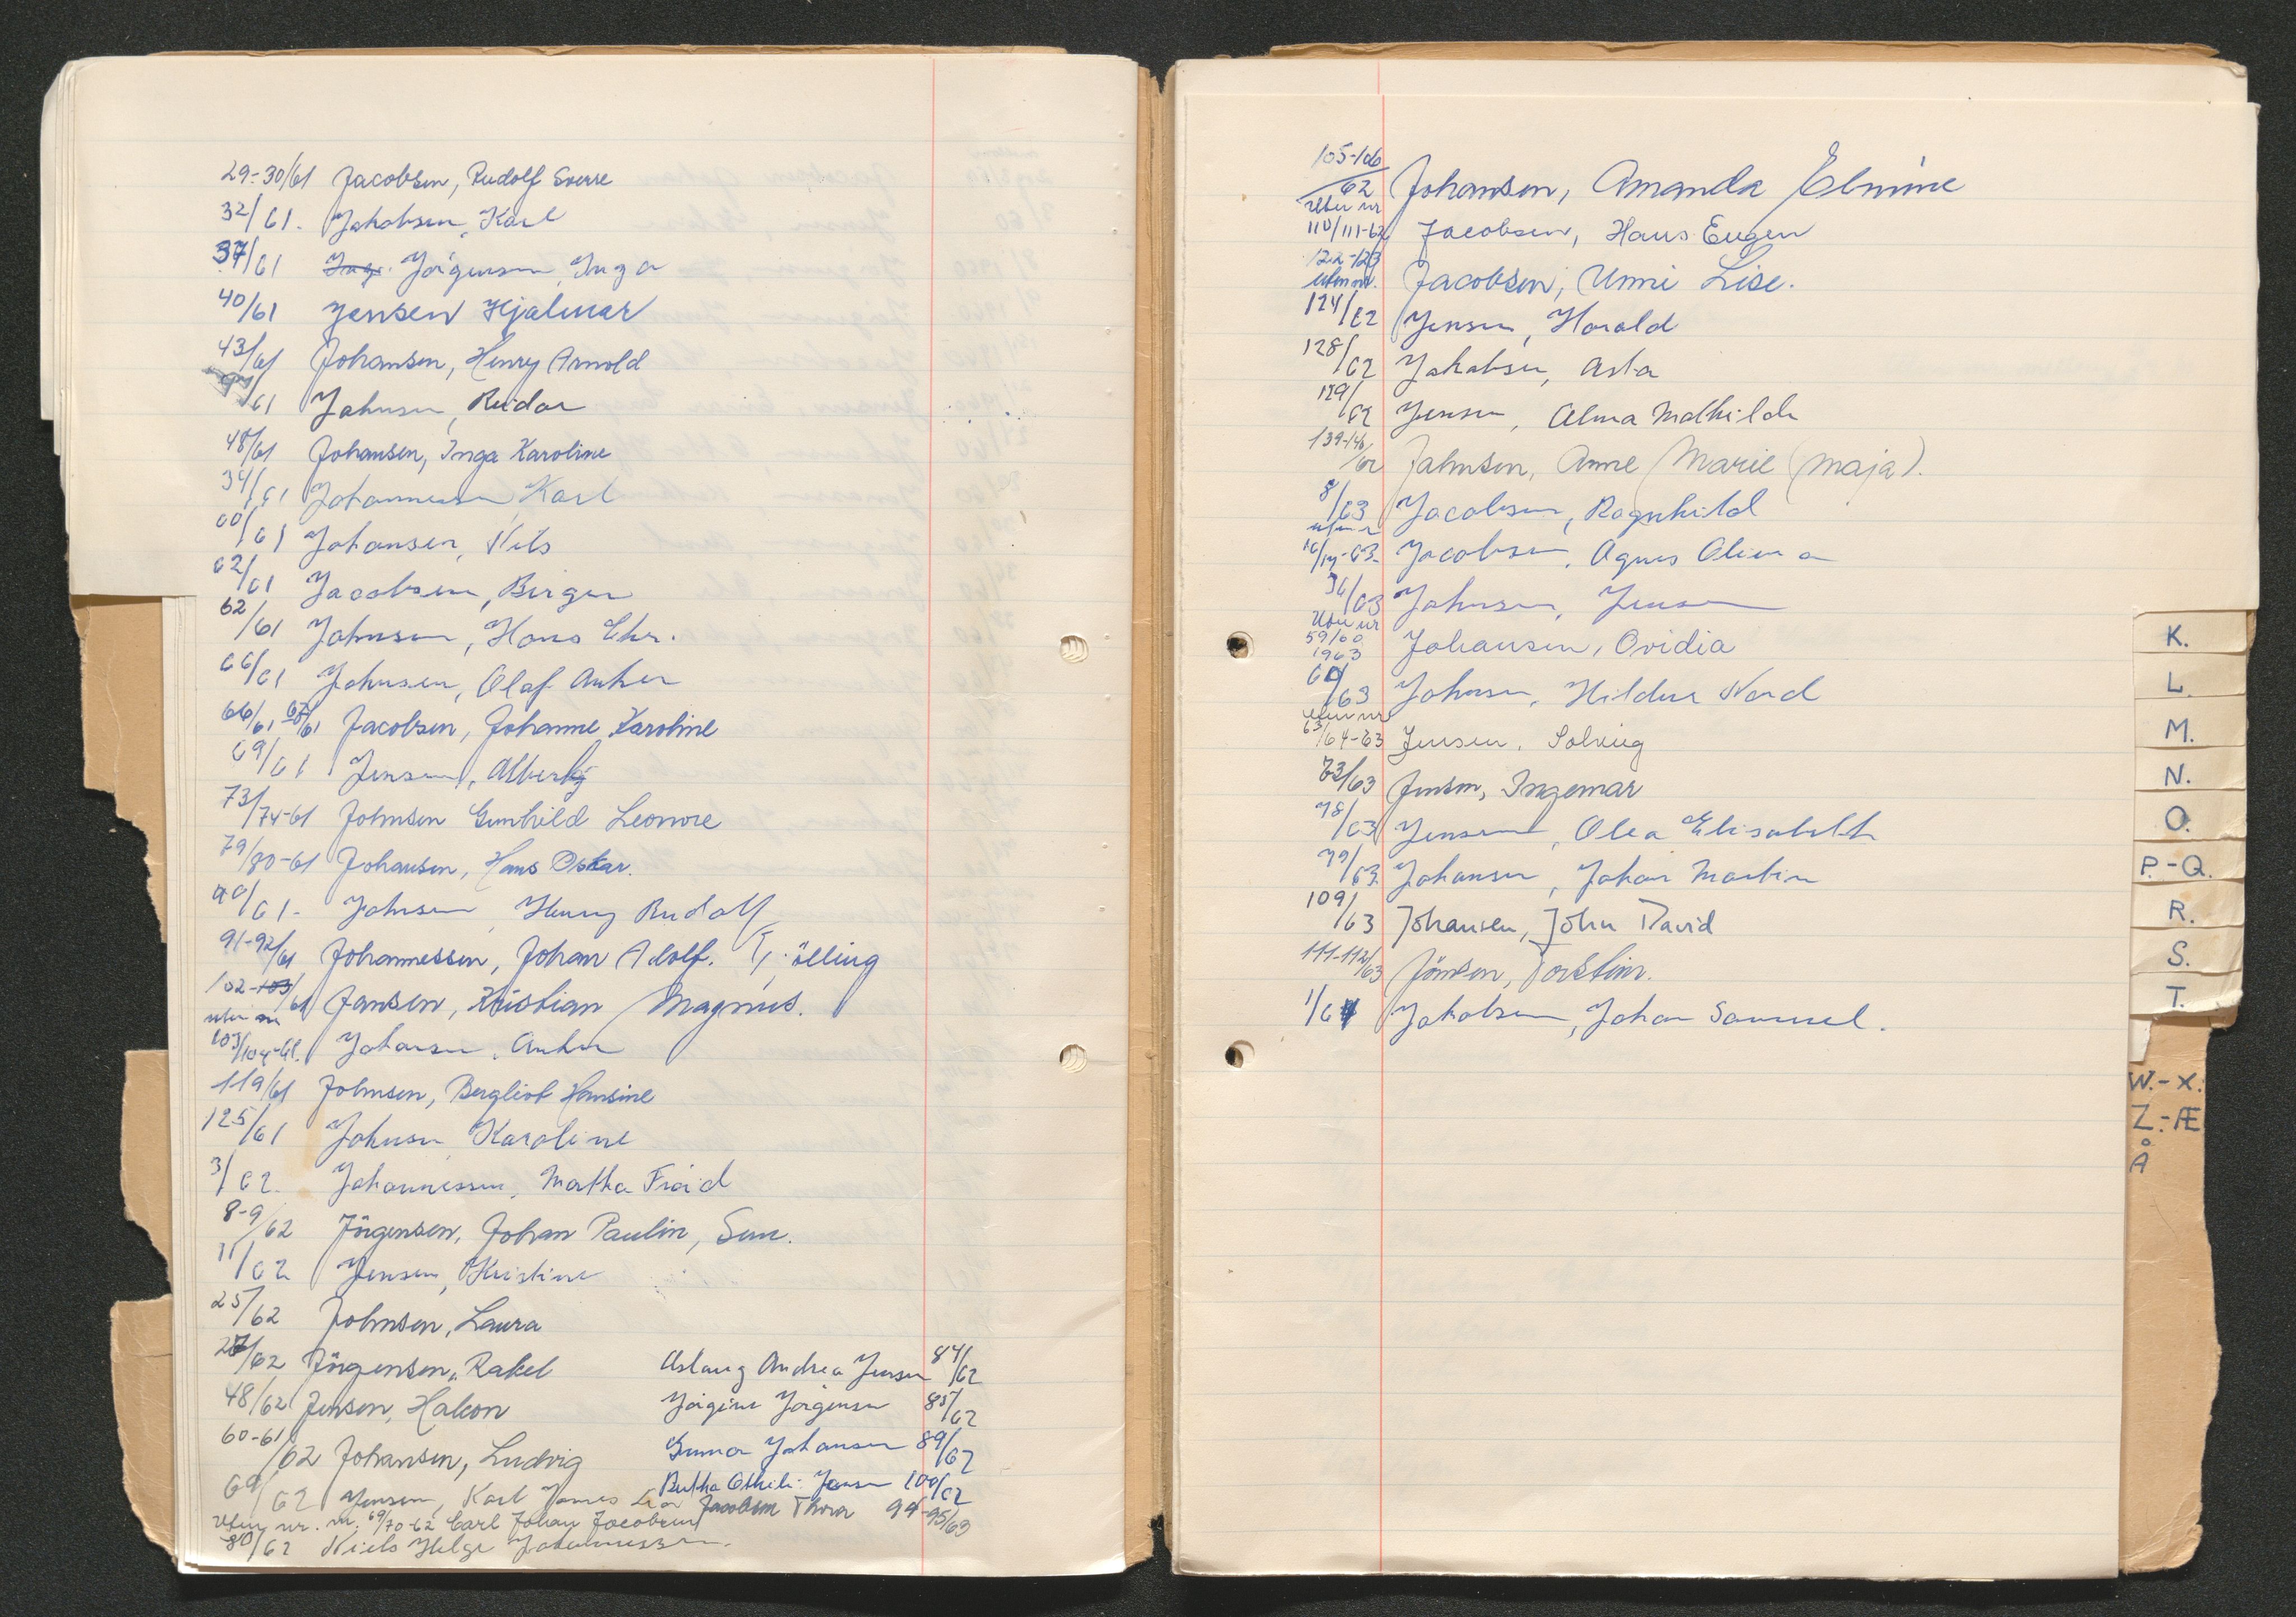 29-30/61 Jacobsen, Rudolf Sverre
32/61. Jakobsen, Karl
37/61 Jörgensen, Inga
40/61 Jensen Hjalmar
43/61 Johansen, Henry Arnold
/61 Johnsen, Reidar
48/61 Johansen, Inga Karoline
34/61 Johannessen Karl
60/61 Johansen, Nils
62/61 Jacobsen, Birger
62/61 Johnsen, Hans Chr.
66/61 Johnsen, Olaf Anker
66/61 67/61 Jacobsen, Johanne Karoline
69/61 Jensen, Albert
73/74-61 Johnsen Gunhild Leonore
79/80-61 Johansen, Hans Oskar.
90/61- Johnsen Henry Rudolf
91-92/61 Johannessen, Johan Adolf.
102-103/61 Jansen, Kristian Magnus.
uten nr
103/104-61. Johansen, Anker
119/61 Johnsen, Bergliot Hansine
125/61 Johnsen Karoline
3/62. Johannessen, Martha
8-9/62 Jörgensen, Johan Paulin, Sen.
11/62 Jensen, Kristine
25/62 Johnsen, Laura
27/62 Jörgensen, Rakel
Aslaug Andrea Jensen 84/62
48/62 Jensen, Hakon
Jörgine Jörgensen 85/62
60-61/62 Johansen, Ludvig
Gunnar Johansen 89/62
69/62 Jensen, Karl
100/62
Jacobsen Thora 94-95/63
Uten nr. 69/70-62 Carl Johan Jacobsen
80/62 Niels Helge Johannessen.
105-106/62 Johansen, Amanda Elmine
Uten nr
110/111-62 Jacobsen, Hans Eugen
122-123
uten nr. Jacobsen, Unni Lise.
124/62 Jensen, Harald
128/62 Jakobsen, Asta
129/62 Jensen, Alma Mathilde
139-146/62 Johnsen, Anne Marie (Maja).
8/63 Jacobsen, Ragnhild
uten nr
16/17-63 Jacobsen, Agnes
36/63 Johnsen, Jensen
Uten nr
59/60
1963 Johansen, Ovidia
60/63 Johnsen, Hildur Nord
uten nr
63/64-63 Jensen, Solveig
73/63 Jensen, Ingemar
78/63 Jensen, Olea Elisabeth
79/63 Johansen, Johan Martin
109/63 Johansen, John David
111-112/63 Jönsen, Torstein.
1/64 Jakobsen, Johan Samuel.
K.
L.
M.
N.
O.
P.-Q.
R.
S.
T.
W.-X.
Z.-Æ
Å